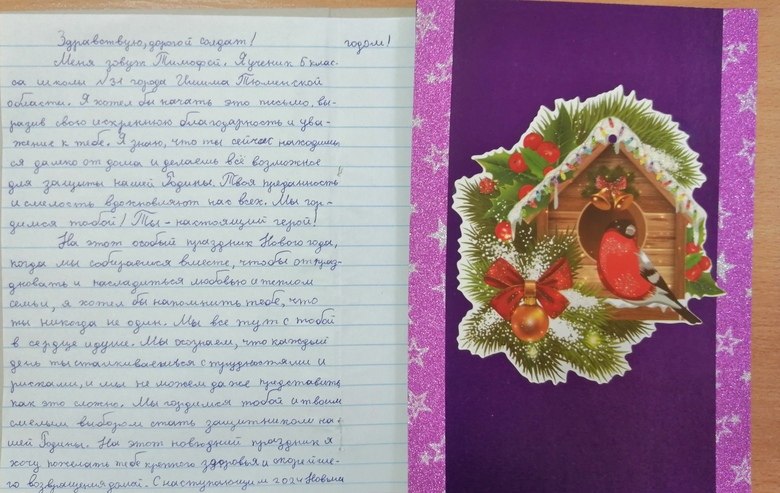 Здравствую, дорогой солдат!
годом!
Меня зовут Тимофей. Я ученик 5 клас-
са школы №31 города Ишима Тюменской
области. Я хотел бы начать это письмо, вы-
разив свою искреннюю благодарность и ува-
жение к тебе. Я знаю, что ты сейчас находишь-
ся далеко от дома и делаешь всё возможное
для защиты нашей Родины. Твоя преданность
и смелость вдохновляют нас всех. Мы гор-
димся тобой! Ты - настоящий герой!
На этот особый праздник Нового года,
когда мы собираемся вместе, чтобы отпраз-
дновать и насладиться любовью и теплом
семьи, я хотел бы напомнить тебе, что
ты никогда не один. Мы все тут с тобой
в сердце и душе. Мы осознаем, что каждый
день ты сталкиваешься с трудностями и
рисками, и мы не можем даже представить
как это сложно. Мы гордимся тобой и твоим
смелым выбором стать защитником на-
шей Родины. На этот новогодний праздник я
хочу пожелать тебе крепкого здоровья и скорейше-
го возвращения домой. С наступающим 2024 Новым